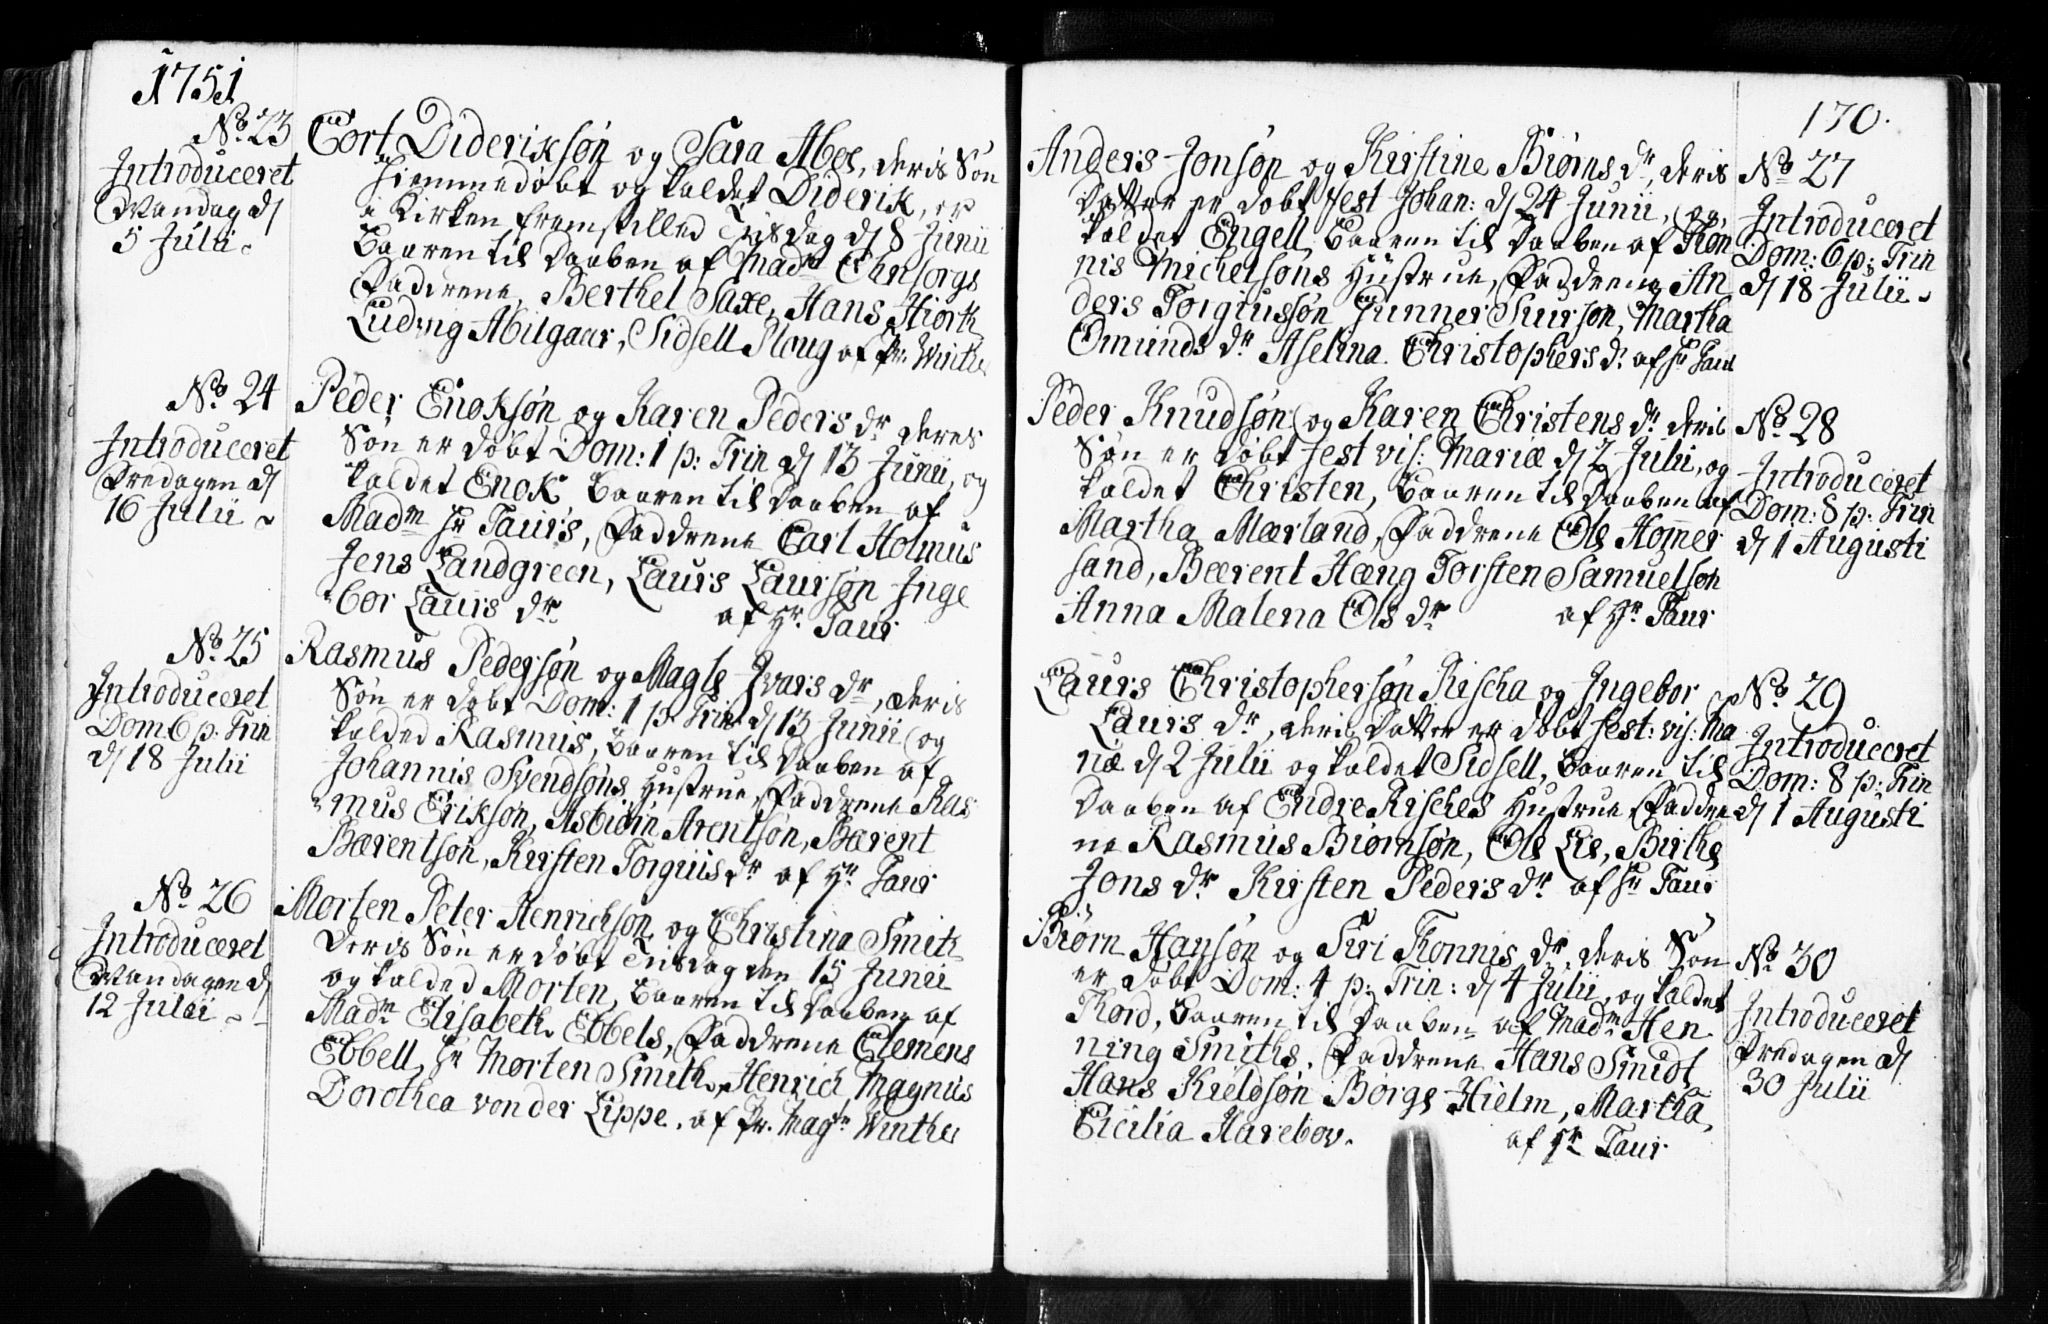 1751
No. 23
Introduceret
Mandag d/
5 Julii.
Cort Dideriksøn og Sara Aboe, deris Søn
hiemmedøbt og kaldet Diderik, er
i Kirken fremstilled Tiisdag d/ 8 Junii
Baaren til Daaben af Madm
Faddrene, Berthel Saxe, Hans Hiorth
Ludvig Abilgaar, Sidsell Ploug af Pr. Winther
No. 24
Introduceret
Fredagen d/
16 Julii
Peder Enoksøn og Karen Peders dr deres
Søn er døbt Dom: 1 p: Trin d/ 13 Junii, og
kaldet Enok Baaren til Daaben af
Madm Hr Taurs, Faddrene Carl Holmus
Jens Landgreen, Laurs Laursøn Inge
bor Laurs dr af Hr. Taur
No. 25
Introduceret
Dom 6 p: Trin
d/ 18 Julii
Rasmus Pedersøn og Magle Ivars dr, deris
Søn er døbt Dom: 1 p. Trin d/ 13 Junii og
kalded Rasmus, Baaren til Daaben af
Johannis Svendsøns Hustrue, Faddrene Ras
mus Eriksøn, Asbiørn Arentsøn, Bærent
Bærentsøn, Kirsten Torgiusdr af Hr. Taur
No. 26
Introduceret
Mandagen d/
12 Julii
Morten Peter Henrichsøn og Christina Smith
deris Søn er døbt Tiisdag den 15 Junii
og kalded Morten, Baaren til Daaben af
Madm Elisabeth Ebbels, Faddrene Clemens
Ebbell, Hr Morten Smith, Henrich Magnus
Dorothea von der Lippe. af Pr. Magr Winther
170.
Anders Jonsøn og Kirstine Biørns dr, deris
Datter er døbt Fest Johan: d/ 24 Junii, og
kaldet Engell Baaren til Daaben af Tøn
nis Michelsøns Hustrue, Faddrene An
ders Torgiussøn Gunner Siursøn, Martha
Omunds dr Aselina Christophers dr af Hr Taur
No 27
Introduceret
Dom: 6 p: Trin
d/ 18 Julii
Peder Knudsøn og Karen Christens dr deris
Søn er døbt Fest vis: Mariæ d/ 2 Julii, og
kaldet Christen, Baaren til Daaben af
Martha Mærland, Faddrene Ole Homer
sand, Bærent Hæng Torsten Samuelsøn
Anna Malena Ols dr af Hr Taur
No. 28
Introduceret
Dom: 8 p: Trin
d/ 1 Augusti
Laurs Christophersøn Rischa og Ingebor
Laurs dr, deris Datter er døbt Fest: vis: Ma
riæ d/ 2 Julii og kaldet Sidsell, Baaren til
Daaben af Endre Risches Hustrue Faddre
ne Rasmus Biørnsøn, Ole Lie, Birthe
Jons dr Kirsten Peders dr af Hr Taur
No. 29
Introduceret
Dom: 8 p: Trin
d/ 1 Augusti
Biørn Hansøn og Siri Tønnis dr, deris Søn
er døbt Dom: 4 p: Trin: d/ 4 Julii, og kaldet
Tord, Baaren til Daaben af Madm Hen
ning Smiths, Faddrene Hans Smidt
Hans Kieldsøn Borge Hielm, Martha
Cicilia Harebov. af Hr Taur
No 30
Introduceret
Fredagen d/
30 Julii